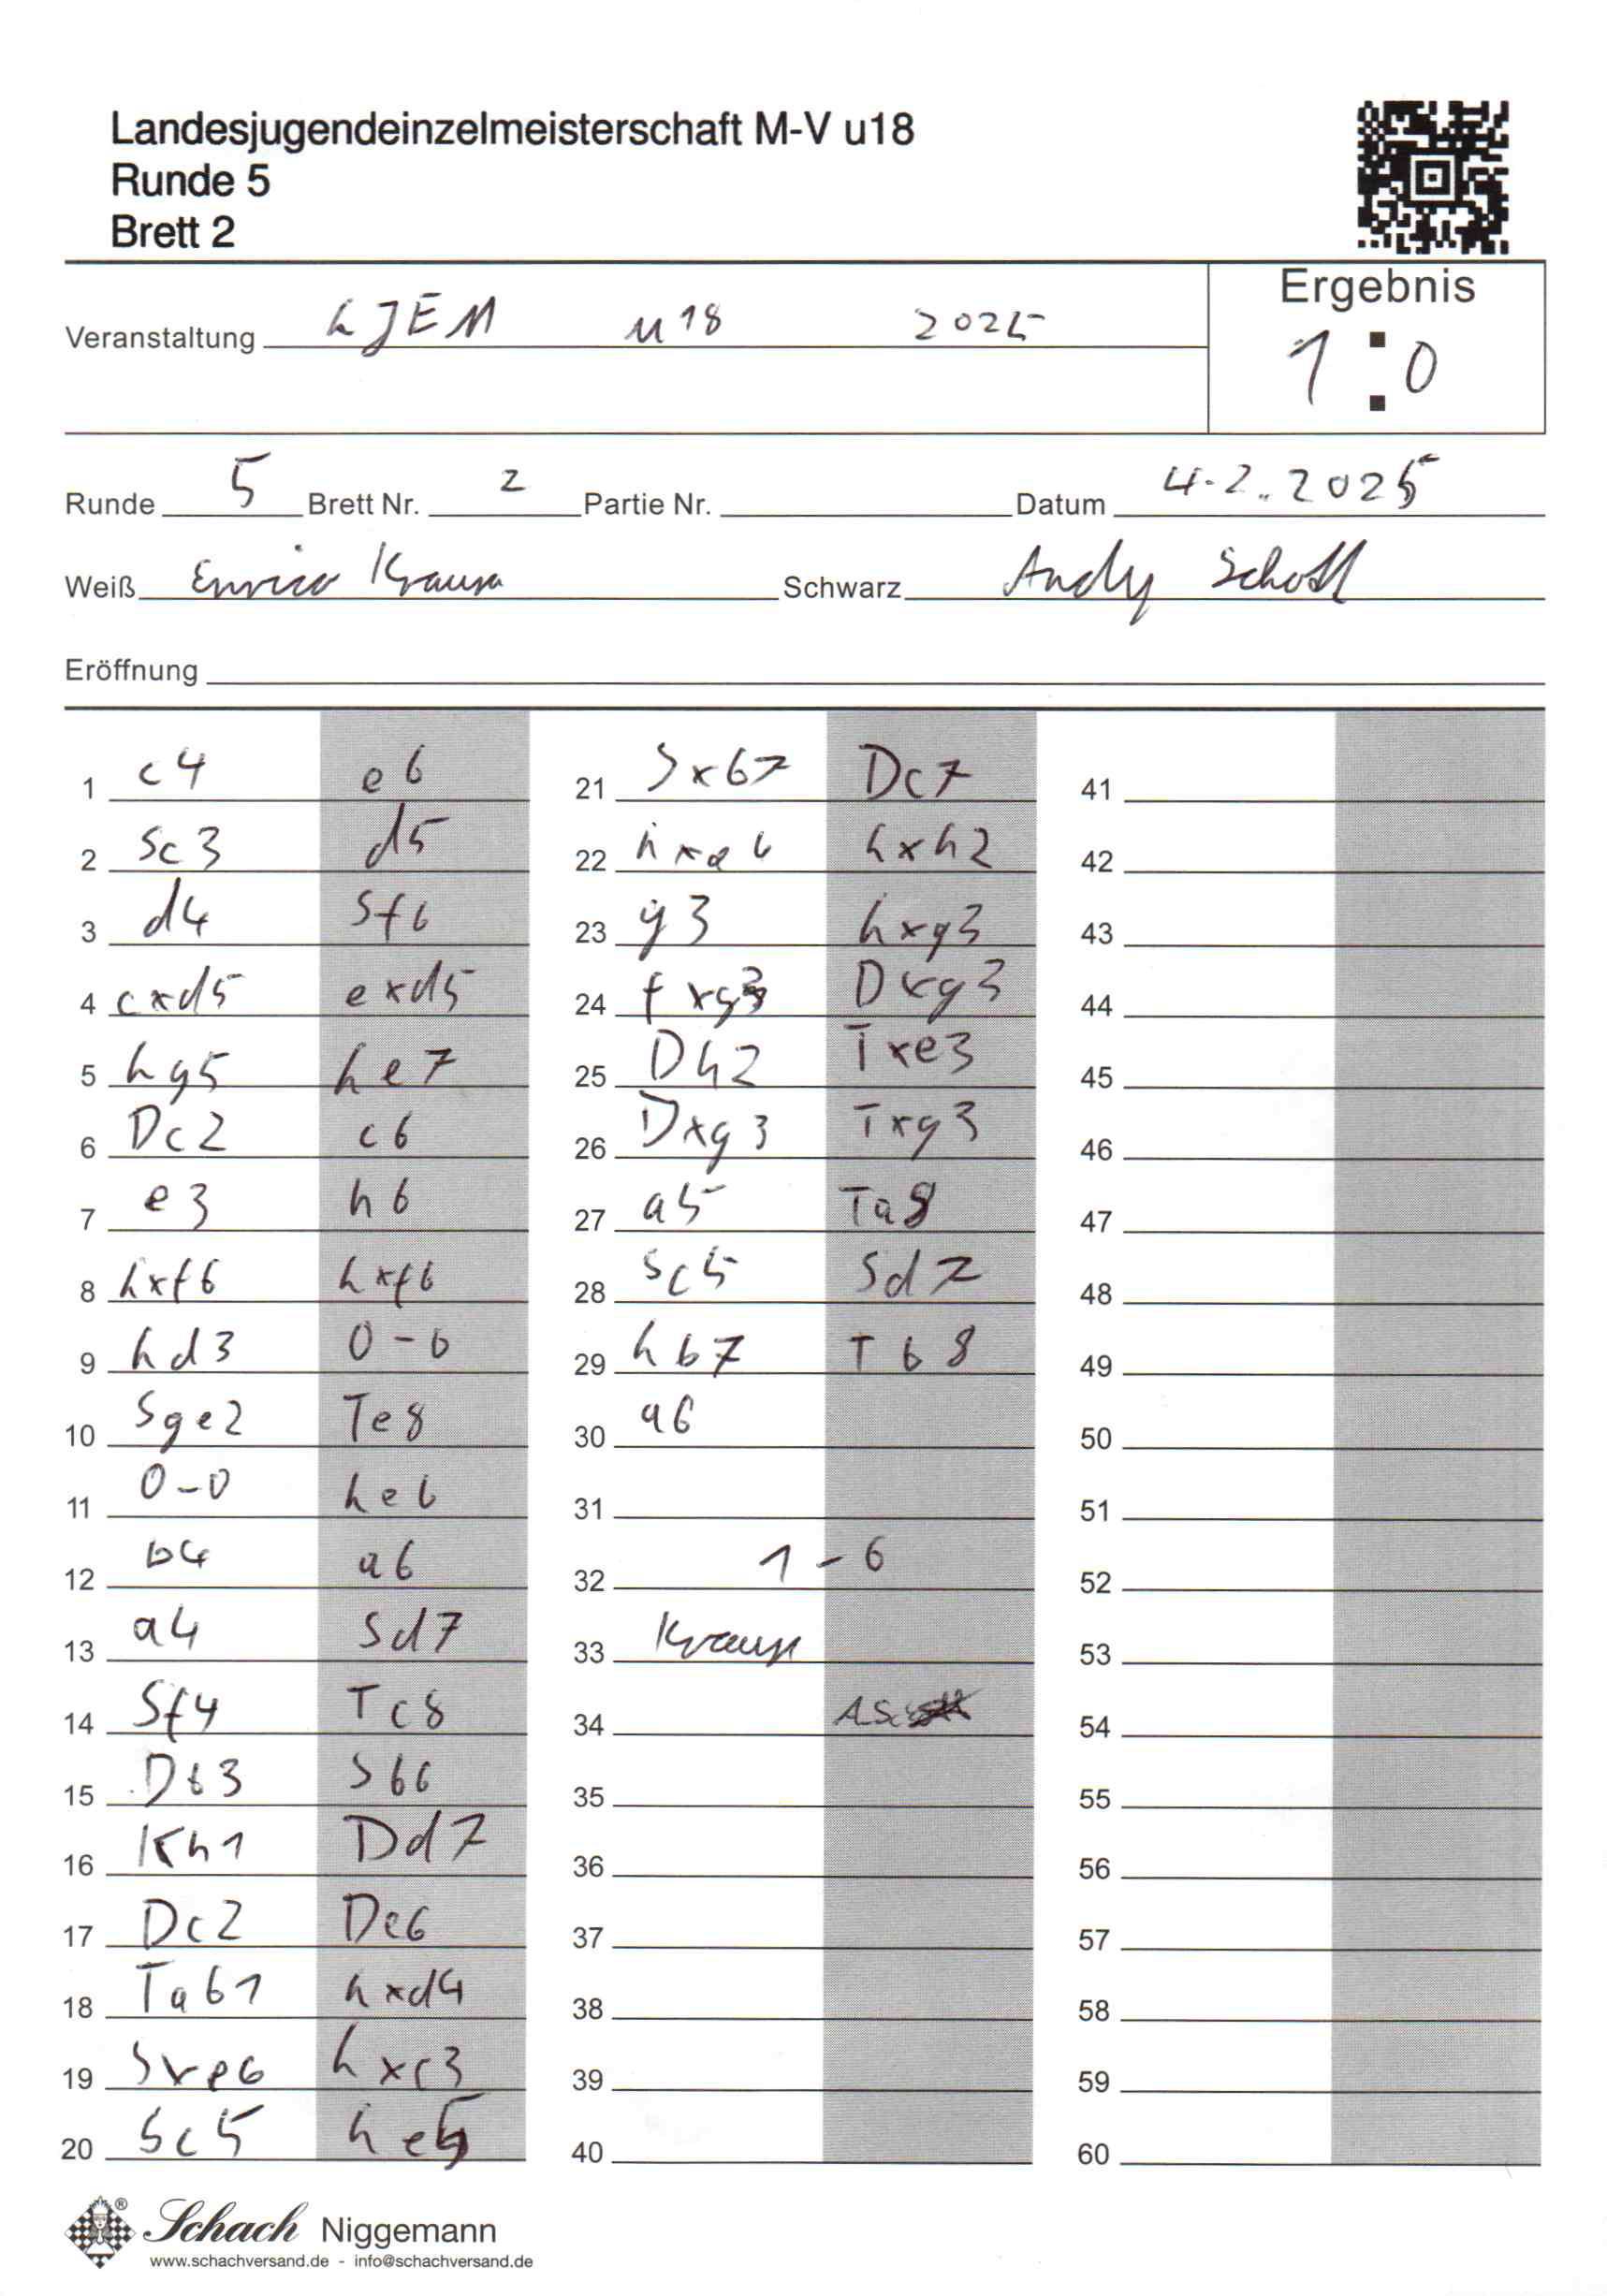 Landesjugendeinzelmeisterschaft M-V u18
Runde 5
Brett 2
Ergebnis
Veranstaltung LJEM u18 2025
1:0
Runde 5 Brett Nr. 2 Partie Nr. Datum 4.2.2025
Weiß Enrico Krause Schwarz Andy Scholl
Eröffnung
1 c4 e6 21 Sxb7 Dc7 41
2 Sc3 d5 22 Lxa6 Lxh2 42
3 d4 Sf6 23 g3 Lxg3 43
4 cxd5 exd5 24 fxg3 Dxg3 44
5 Lg5 Le7 25 Dh2 Txe3 45
6 Dc2 c6 26 Dxg3 Txg3 46
7 e3 h6 27 a5 Ta8 47
8 Lxf6 Lxf6 28 Sc5 Sd7 48
9 Ld3 0-0 29 Lb7 Tb8 49
10 Sge2 Te8 30 a6 50
11 0-0 Le6 31 51
12 b4 a6 32 1-0 52
13 a4 Sd7 33 Krause 53
14 Sf4 Tc8 34 54
15 Db3 Sb6 35 55
16 Kh1 Dd7 36 56
17 Dc2 Dc6 37 57
18 Tab1 Lxd4 38 58
19 Sxe6 Lxc3 39 59
20 Sc5 Le5 40 60
Schach Niggemann
www.schachversand.de - info@schachversand.de